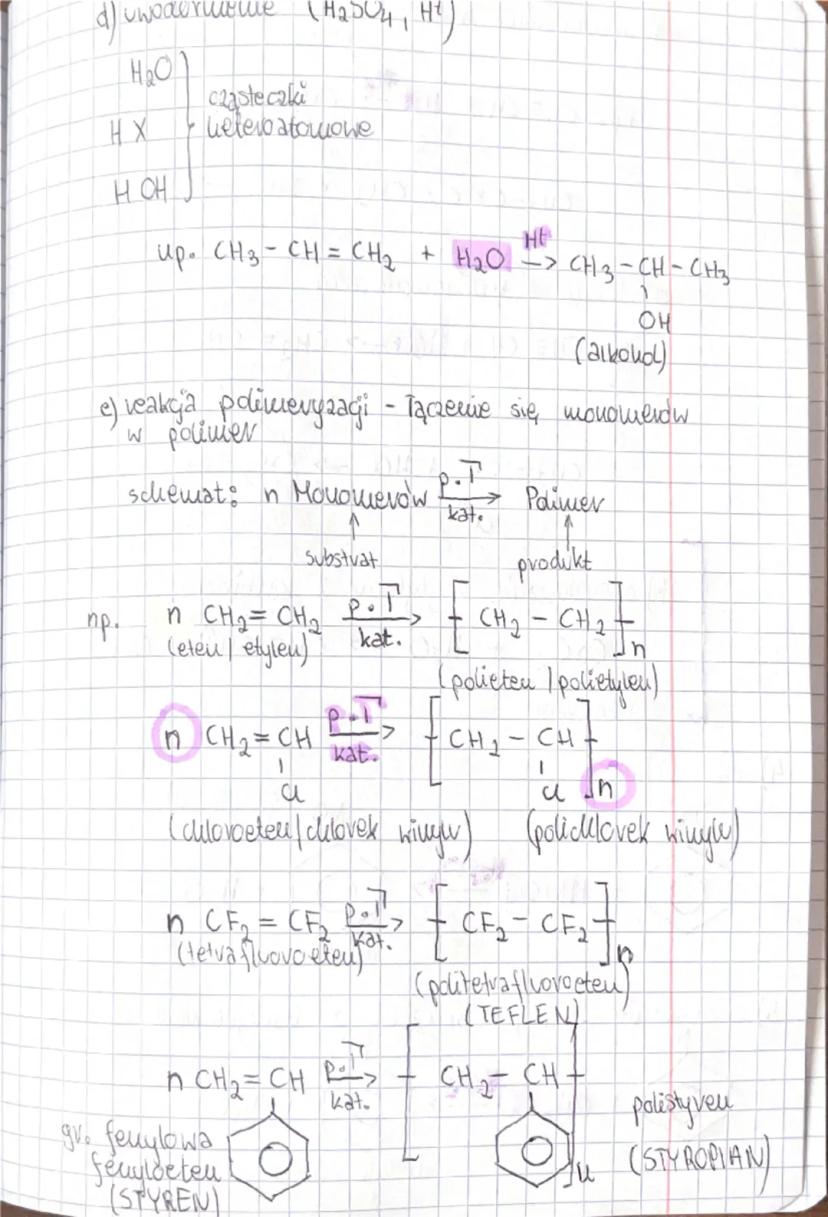 d) uwodornienie (H₂SO₄, H⁺)
H₂O
cząsteczki
H X heteroatomowe
H OH
np. CH₃ - CH = CH₂ + H₂O H⁺ → CH₃ - CH - CH₃
OH
(alkohol)
e) reakcja polimeryzacji - łączenie się monomerów
w polimer
schemat: n Monomerów p.T kat. → Polimer
substrat produkt
np. n CH₂ = CH₂ p.T kat. → [ CH₂ - CH₂ ]n
(eten / etylen)
(polieten / polietylen)
n CH₂ = CH p.T kat. → [ CH₂ - CH ]n
Cl Cl
(chloroeten/chlorek winylu) (polichlorek winylu)
n CF₂ = CF₂ p.T kat. → [ CF₂ - CF₂ ]n
(tetrafluoroeten)
(politetrafluoroeten)
(TEFLEN)
n CH₂ = CH p.T kat. → [ CH₂ - CH ]n
polistyren
gr. fenylowa
fenyloeten (STYROPIAN)
(STYREN)